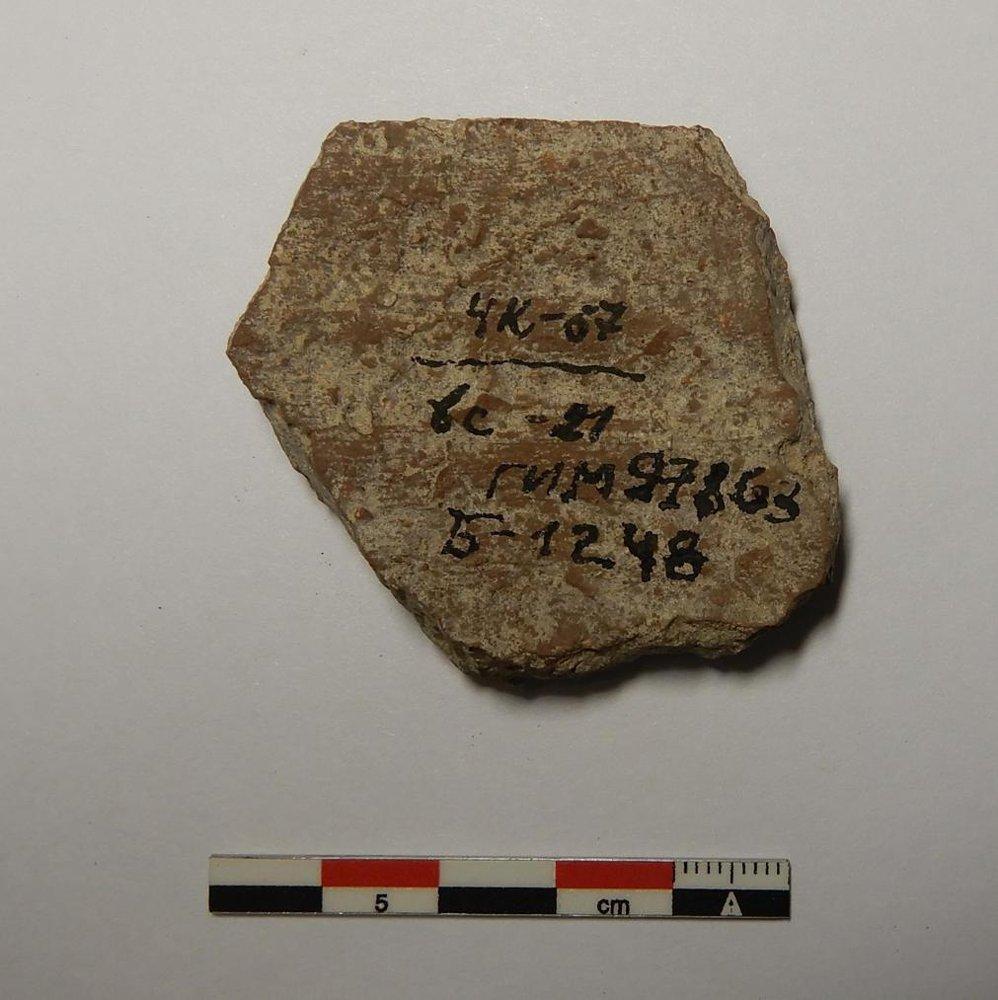 ЧК-67
вс-21
ГИМ 97863
Б-1248
5 cm